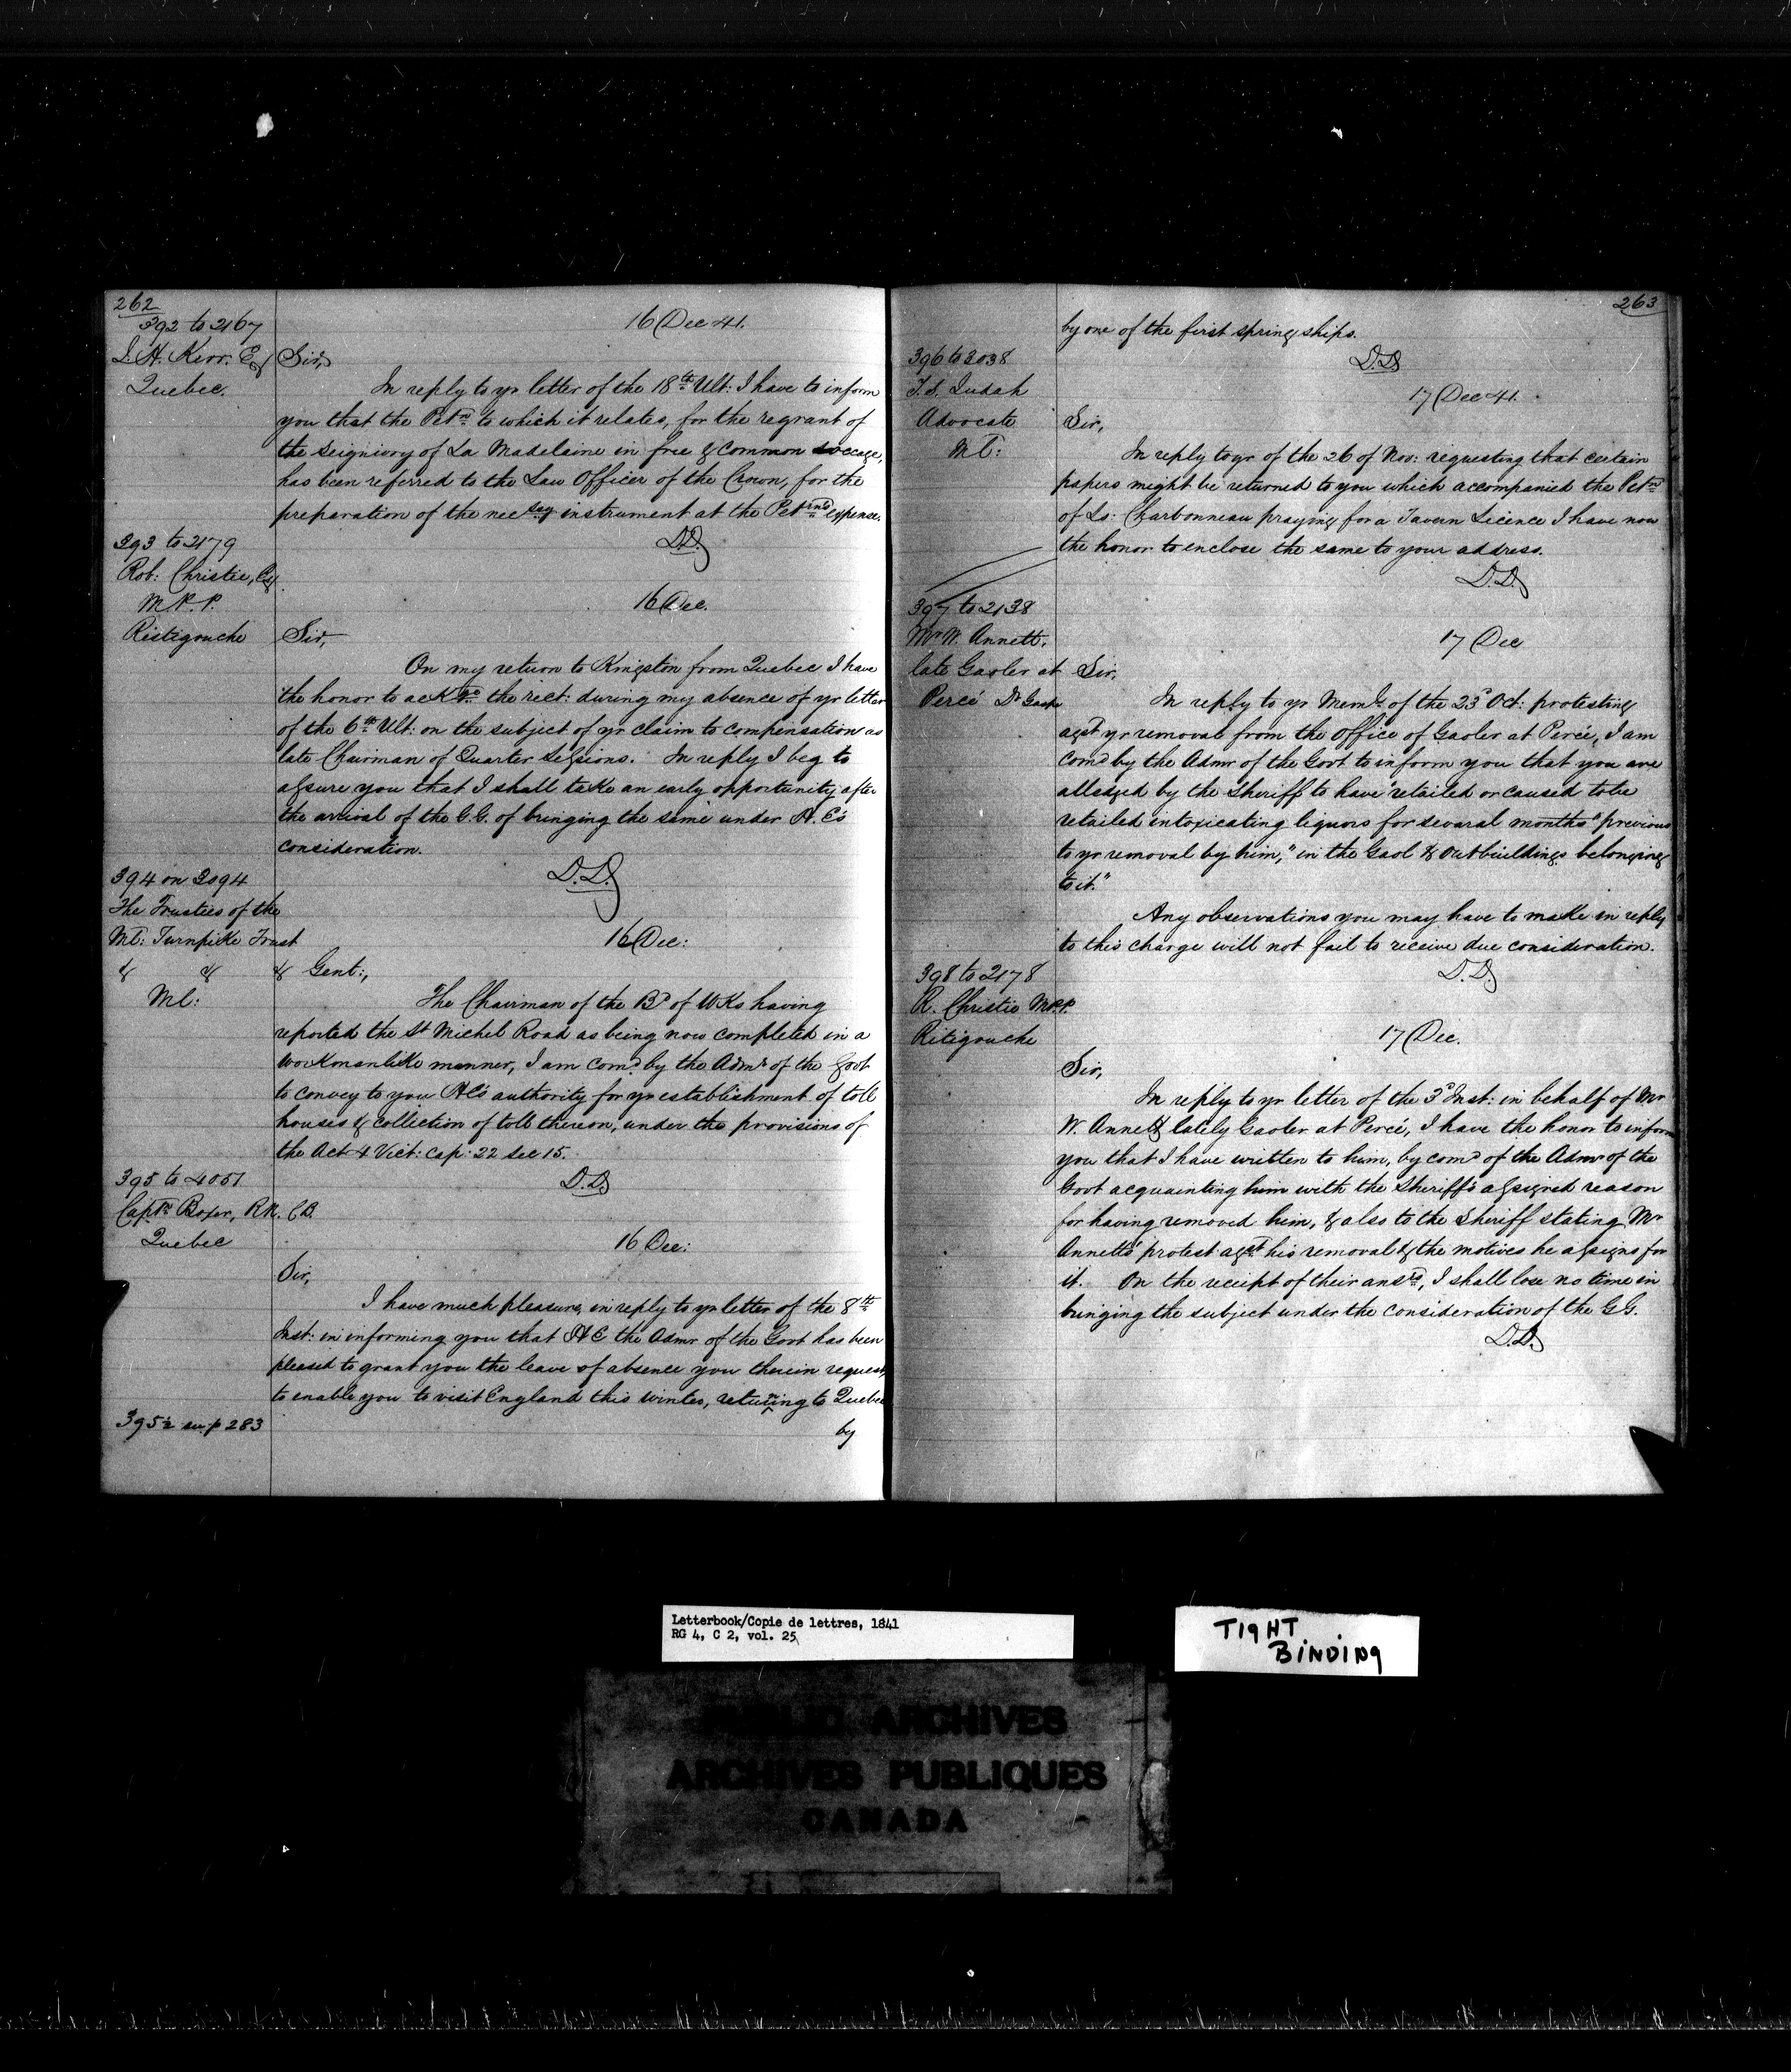 262
392 to 2167
J. H. Kerr. Esq
Quebec.
16 Dec 41.
Sir,
In reply to yr letter of the 18th Ult: I have to inform
you that the Petn to which it relates, for the regrant of
the Seigniory of La Madelaine in free & common soccage,
has been referred to the Law Officer of the Crown, for the
preparation of the necsey instrument at the Petnrs expense.
D.D.
393 to 2179
Rob: Christie, Esq.
M.P.P.
Ristigouche
16 Dec.
Sir,
On my return to Kingston from Quebec I have
the honor to ackge the rect: during my absence of yr letter
of the 6th Ult: on the subject of yr claim to compensation as
late Chairman of Quarter Sessions. In reply I beg to
assure you that I shall take an early opportunity after
the arrival of the G.G. of bringing the same under H. E's
consideration.
D.D.
394 on 3094
The Trustees of the
Ml: Turnpike Trust
& & &
Ml:
16 Dec:
Gent:,
The Chairman of the Bd of Wks having
reported the St Michel Road as being now completed in a
workmanlike manner, I am comd by the Admr of the Govt
to convey to you HE's authority for yr establishment of toll
houses & collection of toll thereon, under the provisions of
the Act 4 Vict: cap: 22 sec 15.
D.D.
395 to 4051
Captn Boxer, RN. CB.
Quebec
16 Dec:
Sir,
I have much pleasure, in reply to yr letter of the 8th
Inst: in informing you that HE the Admr of the Govt has been
pleased to grant you the leave of absence you therein request,
to enable you to visit England this winter, returning to Quebec
395½ see p 283
by
263
by one of the first spring ships.
D.D.
396 to 3038
T. S. Judah
Advocate
Ml:
17 Dec 41.
Sir,
In reply to yr of the 26 of Nov: requesting that certain
papers might be returned to you which accompanied the Petn
of Ls: Charbonneau praying for a Tavern Licence I have now
the honor to enclose the same to your address.
D.D.
397 to 2138
Mr W. Annett.
late Gaoler at
Percé Dt Gaspe
17 Dec
Sir,
In reply to yr Meml. of the 23d Oct: protesting
agst yr removal from the office of Gaoler at Percé, I am
comd by the Admr of the Govt to inform you that you are
alledged by the Sheriff to have retailed or caused to be
retailed intoxicating liquors for several months "previous
to yr removal by him," in the Gaol & outbuildings belonging
to it."
Any observations you may have to make in reply
to this charge will not fail to receive due consideration.
D.D.
398 to 2178
R. Christie M.P.P.
Ritigouche
17 Dec.
Sir,
In reply to yr letter of the 3d Inst: in behalf of Mr
W. Annett lately Gaoler at Percé, I have the honor to inform
you that I have written to him, by comd of the Admr of the
Govt acquainting him with the Sheriff's assigned reason
for having removed him, & also to the Sheriff stating Mr
Annetts' protest agst his removal & the motives he assigns for
it. On the receipt of their ansrs, I shall lose no time in
bringing the subject under the consideration of the GG.
D.D.
Letterbook/Copie de lettres, 1841
RG 4, C 2, vol. 25
TIGHT
BINDING
PUBLIC ARCHIVES
ARCHIVES PUBLIQUES
CANADA